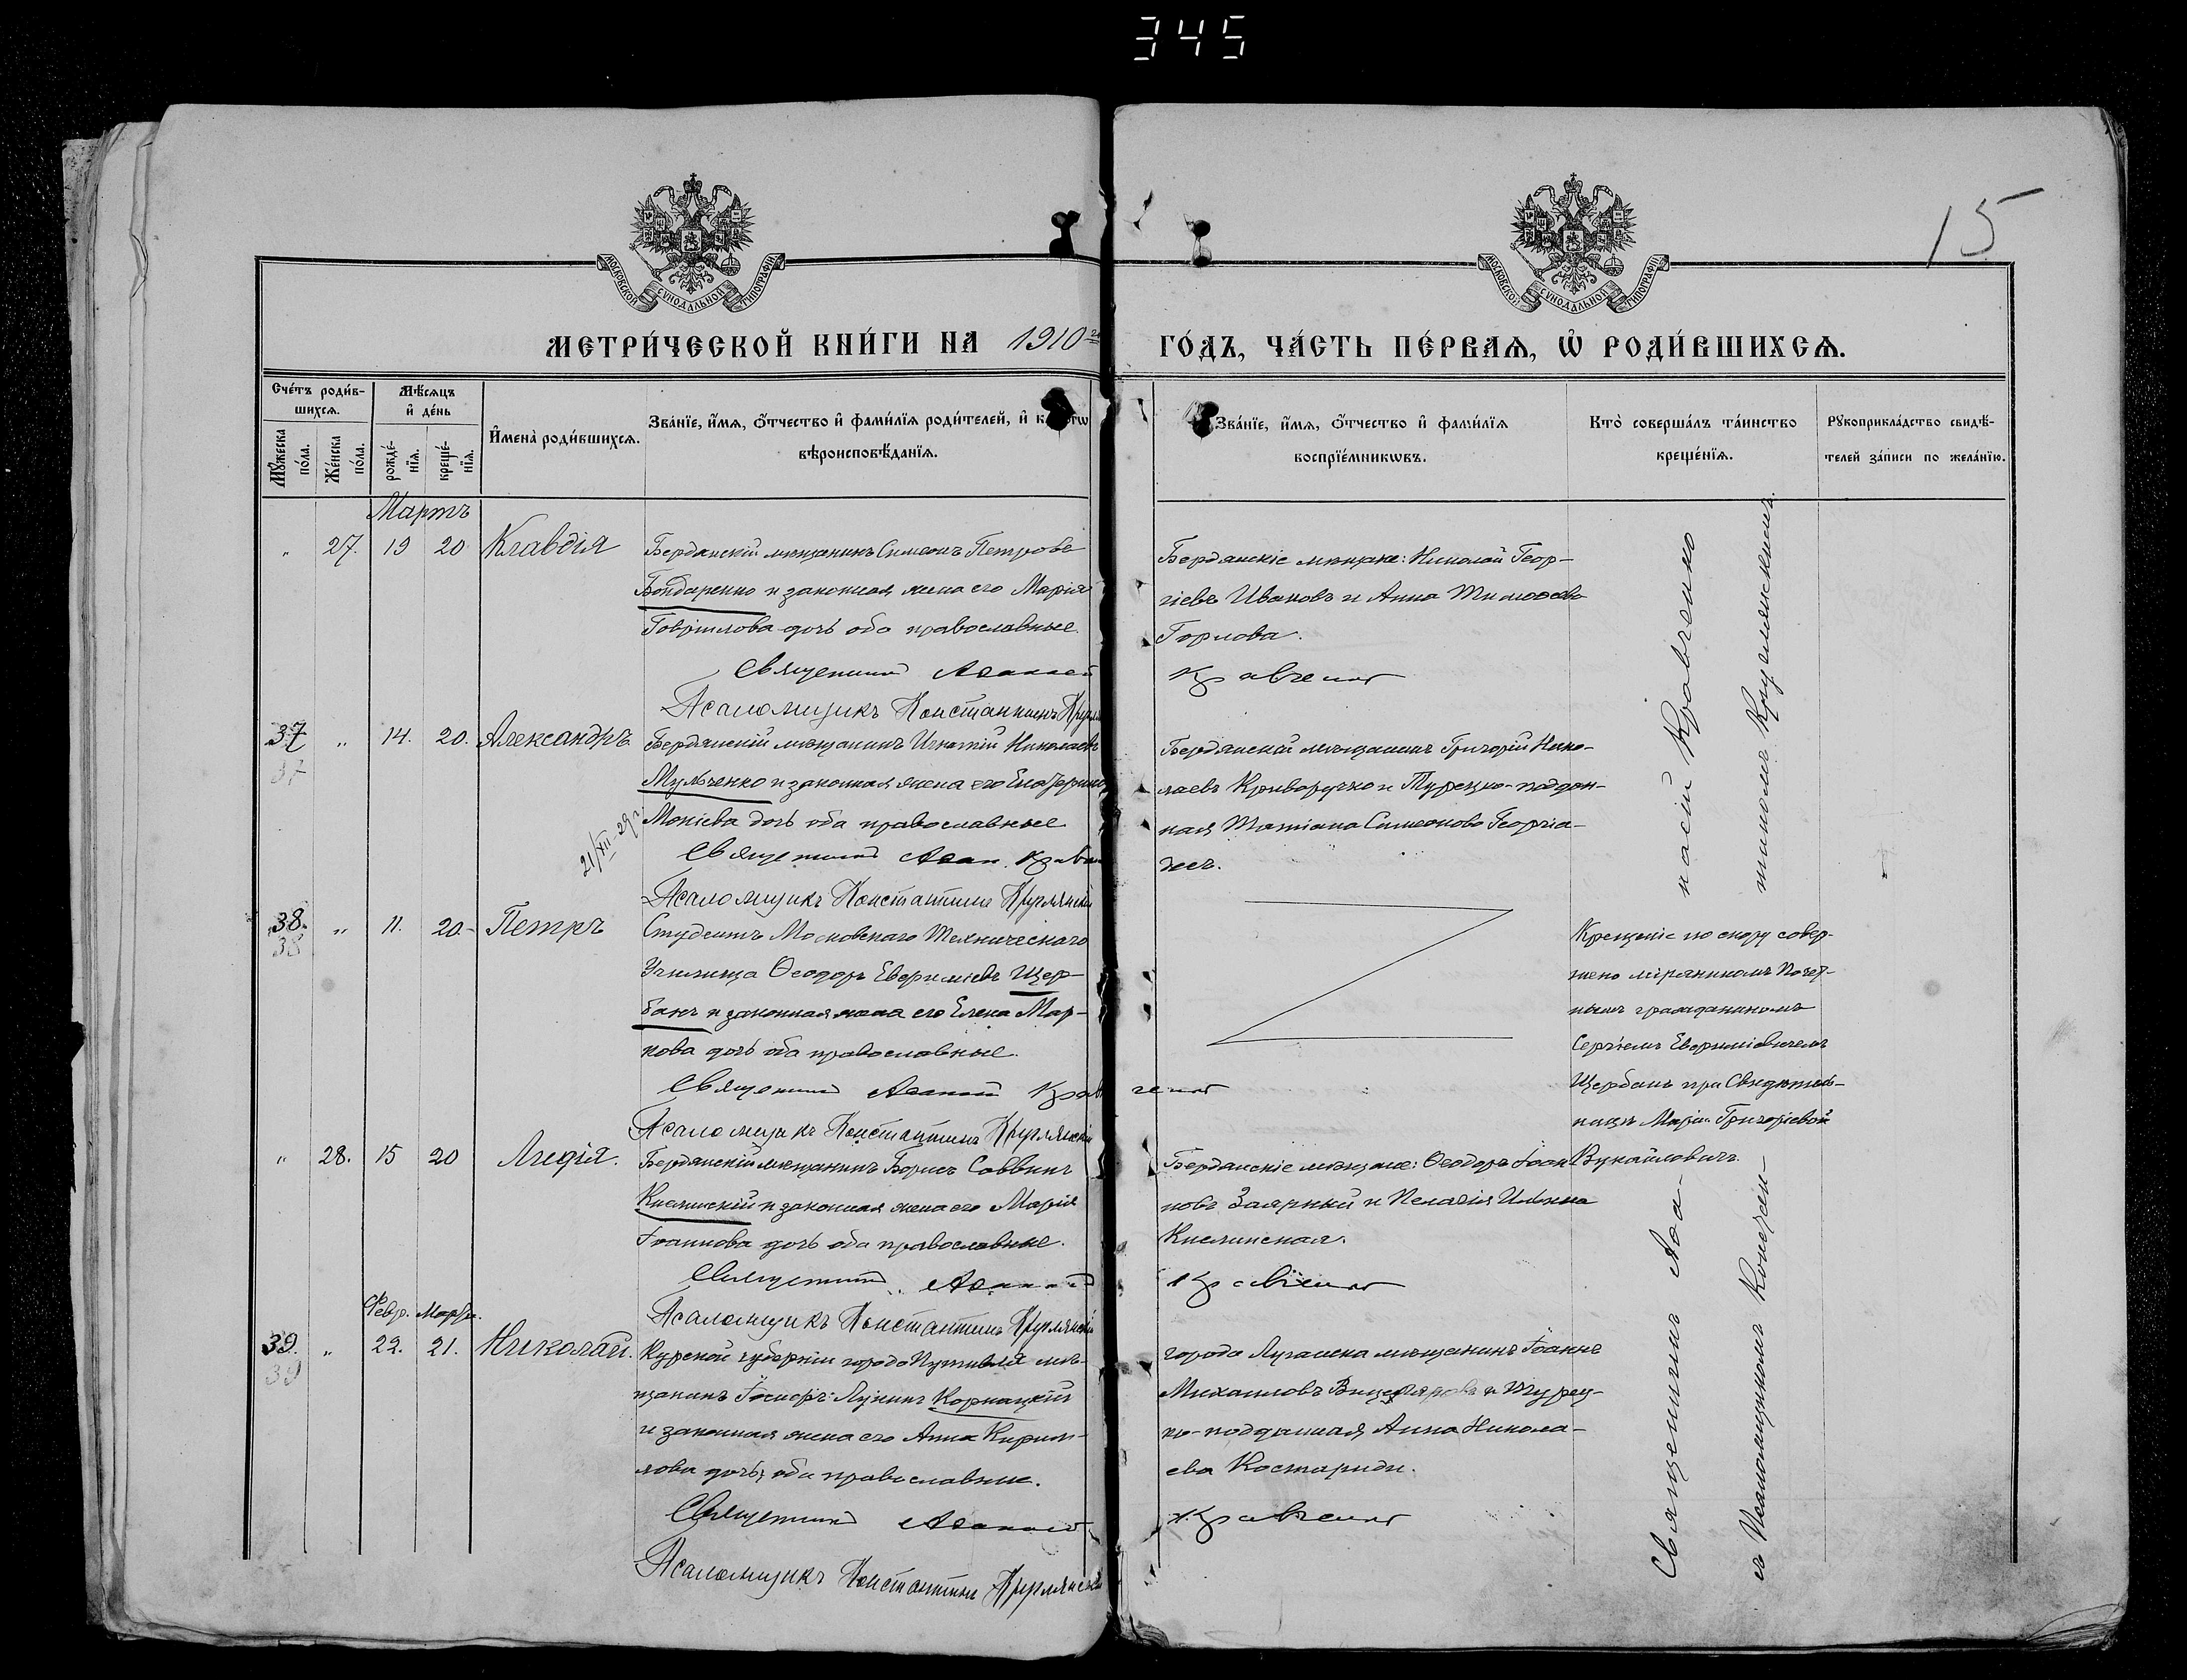 345
15
МОСКОВСКОЙ СУНОДАЛЬНОЙ ТИПОГРАФІИ
МОСКОВСКОЙ СУНОДАЛЬНОЙ ТИПОГРАФІИ
МЕТРИ́ЧЕСКОЙ КНИ́ГИ НА 1910 го
ГО́ДЪ, ЧА́СТЬ ПЕ́РВАѦ, Ѡ҆ РОДИ́ВШИХСѦ.
Сче́тъ роди́в-
шихсѧ.
Мꙋ́жеска по́ла.
Же́нска по́ла.
Мѣ́сѧцъ и҆ де́нь
рожде́-
нїѧ.
креще́-
нїѧ.
И҆мена̀ роди́вшихсѧ.
Зва́нїе, и҆́мѧ, о҆́тчество и҆ фами́лїѧ роди́телей, и҆
вѣроисповѣ́данїѧ.
Зва́нїе, и҆́мѧ, о҆́тчество и҆ фами́лїѧ
воспрїе́мникωвъ.
Кто̀ соверша́лъ та́инство
креще́нїѧ.
Рꙋкоприкла́дство свидѣ́-
телей за́писи по жела́нїю.
Мартъ
" 27. 19 20 Клавдія
Бердянскій мѣщанинъ Симеонъ Петровъ
Бондаренко и законная жена его Марія
Гавріилова дочь оба православные
Священникъ Аѳанасій
Псаломщикъ Константинъ
Бердянскіе мѣщане: Николай Геор-
гіевъ Ивановъ и Анна Тимоѳеева
Горлова.
Кравченко
37 " 14. 20. Александръ
37
Бердянскій мѣщанинъ Игнатій Николаевъ
Мульченко и законная жена его Екатерина
дочь оба православные
21/XII-29 г
Священникъ Аѳан. Кравч
Псаломщикъ Константинъ Круглянскій
Бердянскій мѣщанинъ Григорій Нико-
лаевъ Криворучко и Турецко-поддан-
ная Татіана Симеонова Георгіа-
38. " 11. 20. Петръ
38
Студентъ Московскаго Техническаго
Училища Ѳеодоръ Евѳиміевъ Щер-
банъ и законная жена его Елена Мар-
кова дочь оба православные.
Священникъ Аѳанасій Кравченко
Псаломщикъ Константинъ Круглянскій
Крещеніе по скору совер-
шено міряниномъ Почет-
нымъ гражданиномъ
Сергіемъ Евѳиміевичемъ
Щербанъ при Свидѣтель-
ницѣ Маріи Григоріевой
Вукайловичъ.
" 28. 15 20 Лидія.
Бердянскій мѣщанинъ Борисъ Саввинъ
Кислинскій и законная жена его Марія
Іоаннова дочь оба православные.
Священникъ Аѳанасій
Псаломщикъ Константинъ Круглянскій
Бердянскіе мѣщане: Ѳеодоръ Іоан-
новъ Заярный и Пелагія Ильина
Кислинская.
Кравченко
Февр. Март.
39. " 22. 21. Николай.
39
Курской губерніи города Путивля мѣ-
щанинъ Іосифъ Лукинъ Корнацкій
и законная жена его Анна Кирил-
лова дочь, оба православные.
Священникъ Аѳанасій
Псаломщикъ Константинъ Круглянскій
города Луганска мѣщанинъ Іоаннъ
Михаиловъ и Турец-
ко-подданная Анна Никола-
ева Костариди.
Кравченко
Священникъ Аѳа-
насій Кравченко
съ Псаломщикомъ Констан-
тиномъ Круглянскимъ.